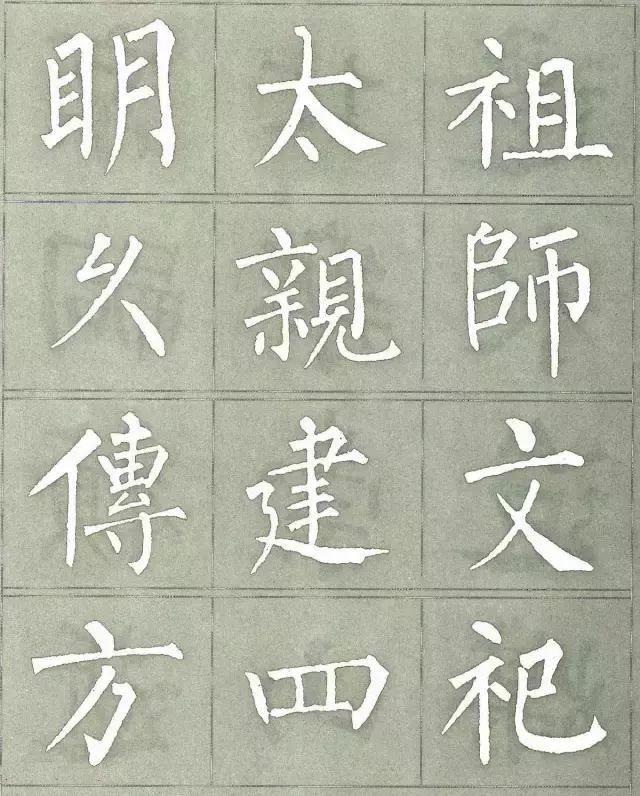 祖師文祀
太親建四
眀久傳方